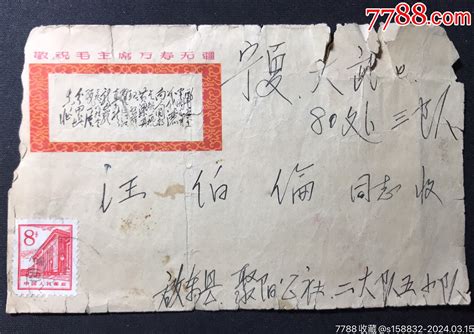 7788.com
敬祝毛主席万寿无疆
宁夏 大武口
80处 三队
汪伯倫 同志 收
8分
中国人民邮政
启东县 聚阳公社 二大队五小队
7788收藏@s158832-2024.03.15